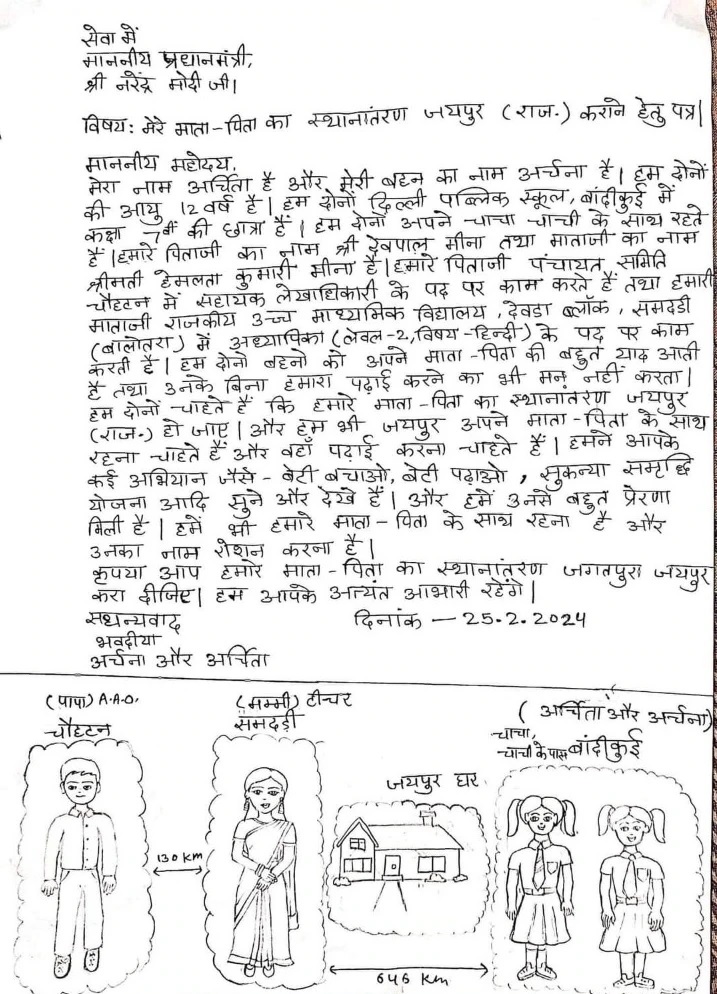 सेवा में
माननीय प्रधानमंत्री,
श्री नरेंद्र मोदी जी।
विषय: मेरे माता-पिता का स्थानांतरण जयपुर (राज.) कराने हेतु पत्र।
माननीय महोदय,
मेरा नाम अर्चिता है और मेरी बहन का नाम अर्चना है। हम दोनों
की आयु 12 वर्ष है। हम दोनों दिल्ली पब्लिक स्कूल, बांदीकुई में
कक्षा 7वीं की छात्रा हैं। हम दोनों अपने चाचा चाची के साथ रहते
हैं। हमारे पिताजी का नाम श्री देवपाल मीना तथा माताजी का नाम
श्रीमती हेमलता कुमारी मीना है। हमारे पिताजी पंचायत समिति
चौहटन में सहायक लेखाधिकारी के पद पर काम करते हैं तथा हमारी
माताजी राजकीय उच्च माध्यमिक विद्यालय, देवडा ब्लॉक, समदडी
(बालोतरा) में अध्यापिका (लेवल-2, विषय-हिन्दी) के पद पर काम
करती है। हम दोनो बहनो को अपने माता-पिता की बहुत याद आती
है तथा उनके बिना हमारा पढ़ाई करने का भी मन नहीं करता।
हम दोनों चाहते हैं कि हमारे माता-पिता का स्थानांतरण जयपुर
(राज.) हो जाए। और हम भी जयपुर अपने माता-पिता के साथ
रहना चाहते हैं और वहाँ पढ़ाई करना चाहते हैं। हमने आपके
कई अभियान जैसे- बेटी बचाओ, बेटी पढ़ाओ, सुकन्या समृद्धि
योजना आदि सुने और देखे हैं। और हमें उनसे बहुत प्रेरणा
मिली है। हमें भी हमारे माता-पिता के साथ रहना है और
उनका नाम रोशन करना है।
कृपया आप हमारे माता-पिता का स्थानांतरण जगतपुरा जयपुर
करा दीजिए। हम आपके अत्यंत आभारी रहेंगे।
सधन्यवाद दिनांक - 25.2.2024
भवदीया
अर्चना और अर्चिता
(पापा) A.A.O.
चौहटन
(मम्मी) टीचर
समदड़ी
(अर्चिता और अर्चना)
चाचा,
चाची के पास बांदीकुई
जयपुर घर
130 KM
646 Km